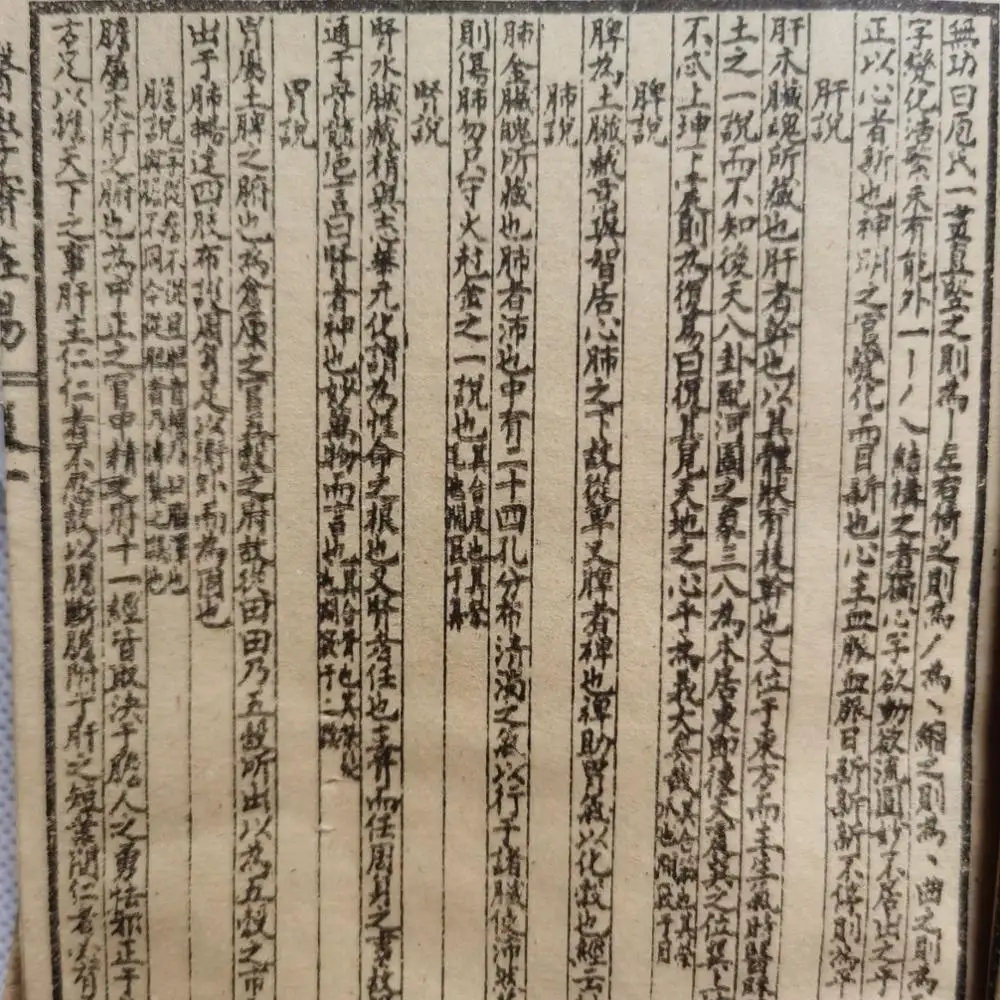 無功曰厄氏一畫直竪之則為丨左右倚之則為丿為丶縮之則為丶曲之則為
字變化活潑未有能外一丨丿乀結構之者獨心字欲動欲流圓妙不居出之乎
正以心者新也神明之官變化而日新也心主血脈血脈日新新新不停則為平
肝說
肝木臟魂所藏也肝者幹也以其體狀有枝幹也又位于東方而主生氣時醫昧
土之一說而不知後天八卦配河圖之象三八為木居東即後天震巽之位巽上
不忒上坤下震則為復易曰復其見天地之心乎為義大矣哉其合筋也其榮爪也開竅于目
脾說
脾為土臟藏意與智居心肺之下故從卑又脾者裨也裨助胃氣以化穀也經云
肺說
肺金臟魄所藏也肺者沛也中有二十四孔分布清濁之氣以行于諸臟使沛然
則傷肺勿只守火尅金之一說也其合皮也其榮毛也開竅于鼻
腎說
腎水臟藏精與志華元化謂為性命之根也又腎者任也主骨而任周身之事故
通于骨 言曰腎者神也妙萬物而言也其合骨也其榮髮也開竅于二陰
胃說
胃屬土脾之腑也為倉廩之官五穀之府故從田田乃五穀所出以為五穀之市
出于肺 達四肢布 周身足以衛外而為固也
膽說
膽屬木肝之腑也為中正之官中精之府十一經皆取決于膽人之勇怯邪正于
方足以擔天下之事肝主仁仁者不忍故以膽斷膽附于肝之短葉間仁者必有